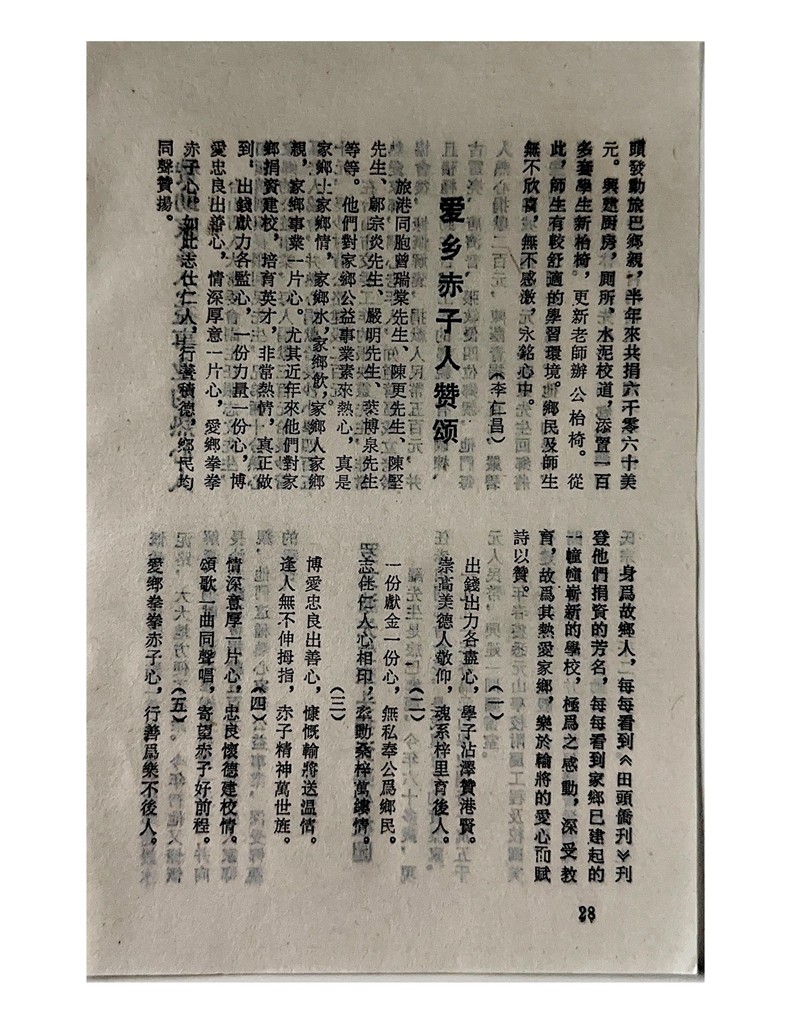 頭發動旅巴鄉親，半年來共捐六千零六十美
元。興建厨房，厕所，水泥校道，添置一百
多套學生新枱椅。更新老師辦公枱椅。從
此，師生有較舒適的學習環境。鄉民及師生
無不欣喜，無不感激，永銘心中。
（李仁昌）
爱乡赤子人赞颂
旅港同胞曾瑞棠先生、陳更先生、陳堅
先生、鄺宗炎先生、嚴明先生、蒙博泉先生
等等。他們對家鄉公益事業素來熱心，真是
家鄉土家鄉情，家鄉水，家鄉飲，家鄉人家鄉
親，家鄉事業一片心。尤其近年來他們對家
鄉捐資建校，培育英才，非常熱情，真正做
到，出錢獻力各盡心，一份力量一份心，博
愛忠良出善心，情深厚意一片心，愛鄉拳拳
赤子心。如此志仕仁人，行善積德，鄉民均
同聲贊揚。
身爲故鄉人，每每看到《田頭僑刊》刊
登他們捐資的芳名，每每看到家鄉已建起的
一幢幢嶄新的學校，極爲之感動，深受教
育，故爲其熱愛家鄉，樂於輸將的愛心而賦
詩以贊。
（一）
出錢出力各盡心，學子沾澤贊港賢。
崇高美德人敬仰，魂系梓里育後人。
（二）
一份獻金一份心，無私奉公爲鄉民。
志仕仁人心相印，牽動桑梓萬縷情。
（三）
博愛忠良出善心，慷慨輸將送溫情。
逢人無不伸拇指，赤子精神萬世旌。
（四）
情深意厚一片心，忠良懷德建校情。
頌歌一曲同聲唱，寄望赤子好前程。
（五）
愛鄉拳拳赤子心，行善爲樂不後人。
28